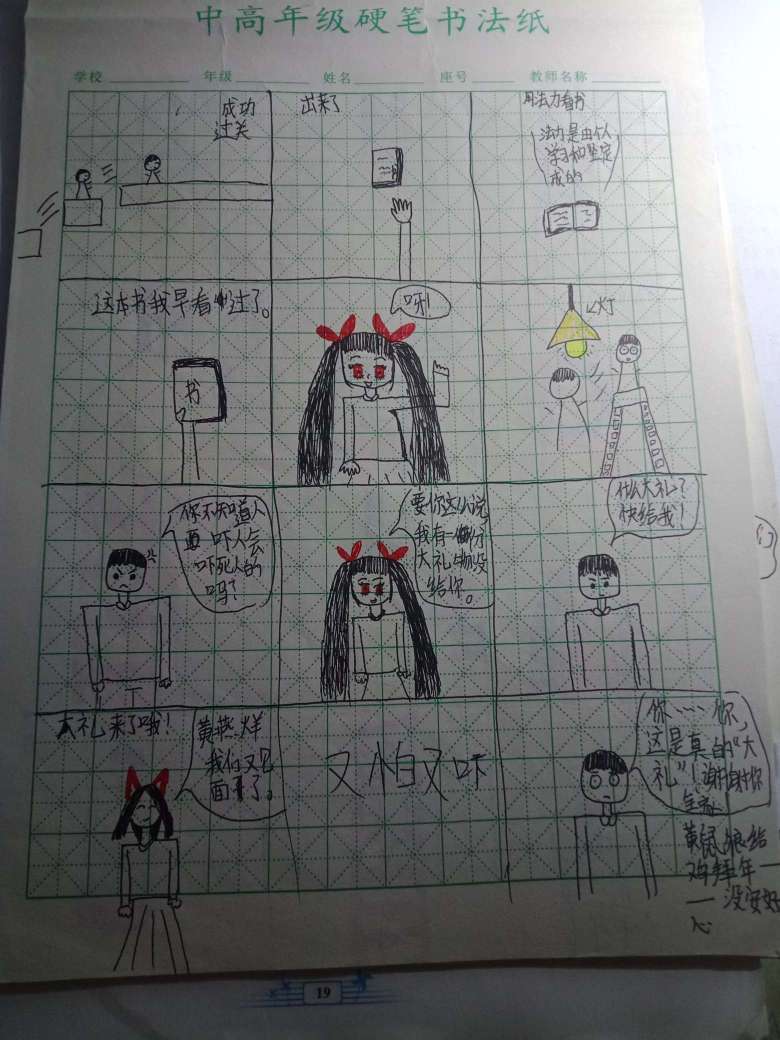 中高年级硬笔书法纸
学校
年级
姓名
座号
教师名称
成功
过关
出来了
用法力看书
法力是由从
学习和坚定
成的
这本书我早看过了。
书
呀!
灯
你不知道人
吓人会
吓死人的
吗?
要你这么说,
我有一份
大礼物没
给你。
什么大礼?
快给我!
大礼来了哦!
黄燕烊
我们又见
面了。
又怕又吓
你……你,
这是真的“大
礼”!谢谢你
全家
黄鼠狼给
鸡拜年—
—没安好
心
19